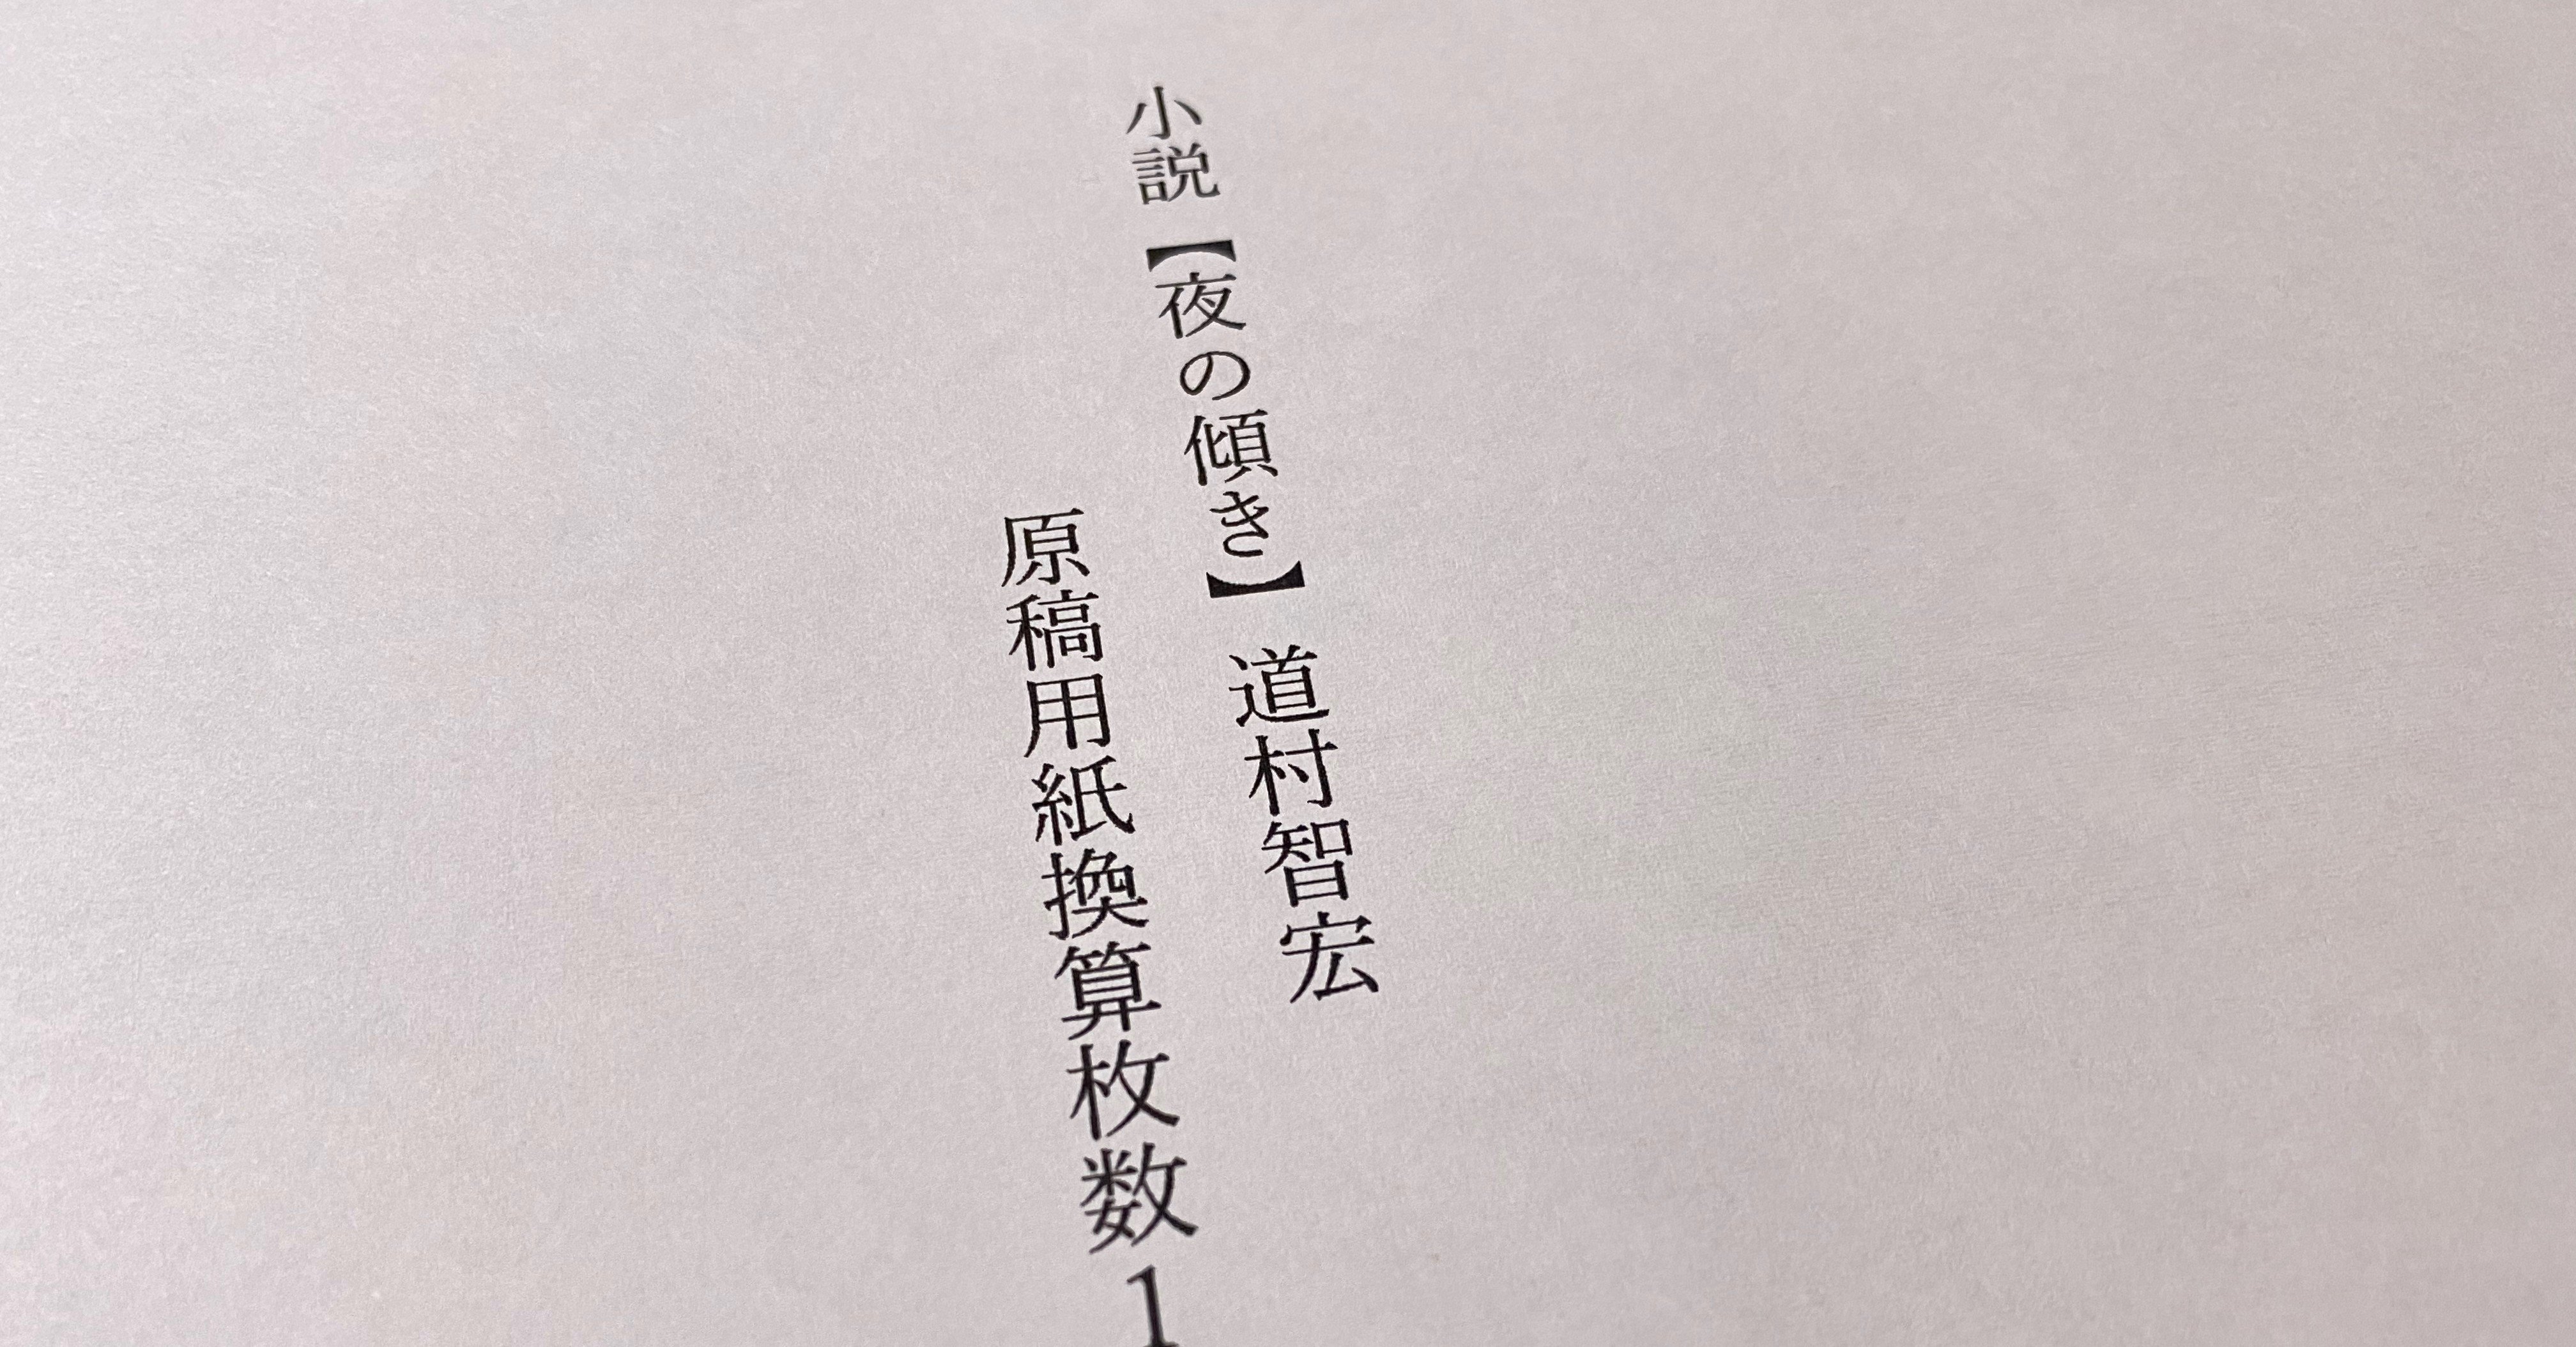 小説【夜の傾き】道村智宏
原稿用紙換算枚数1